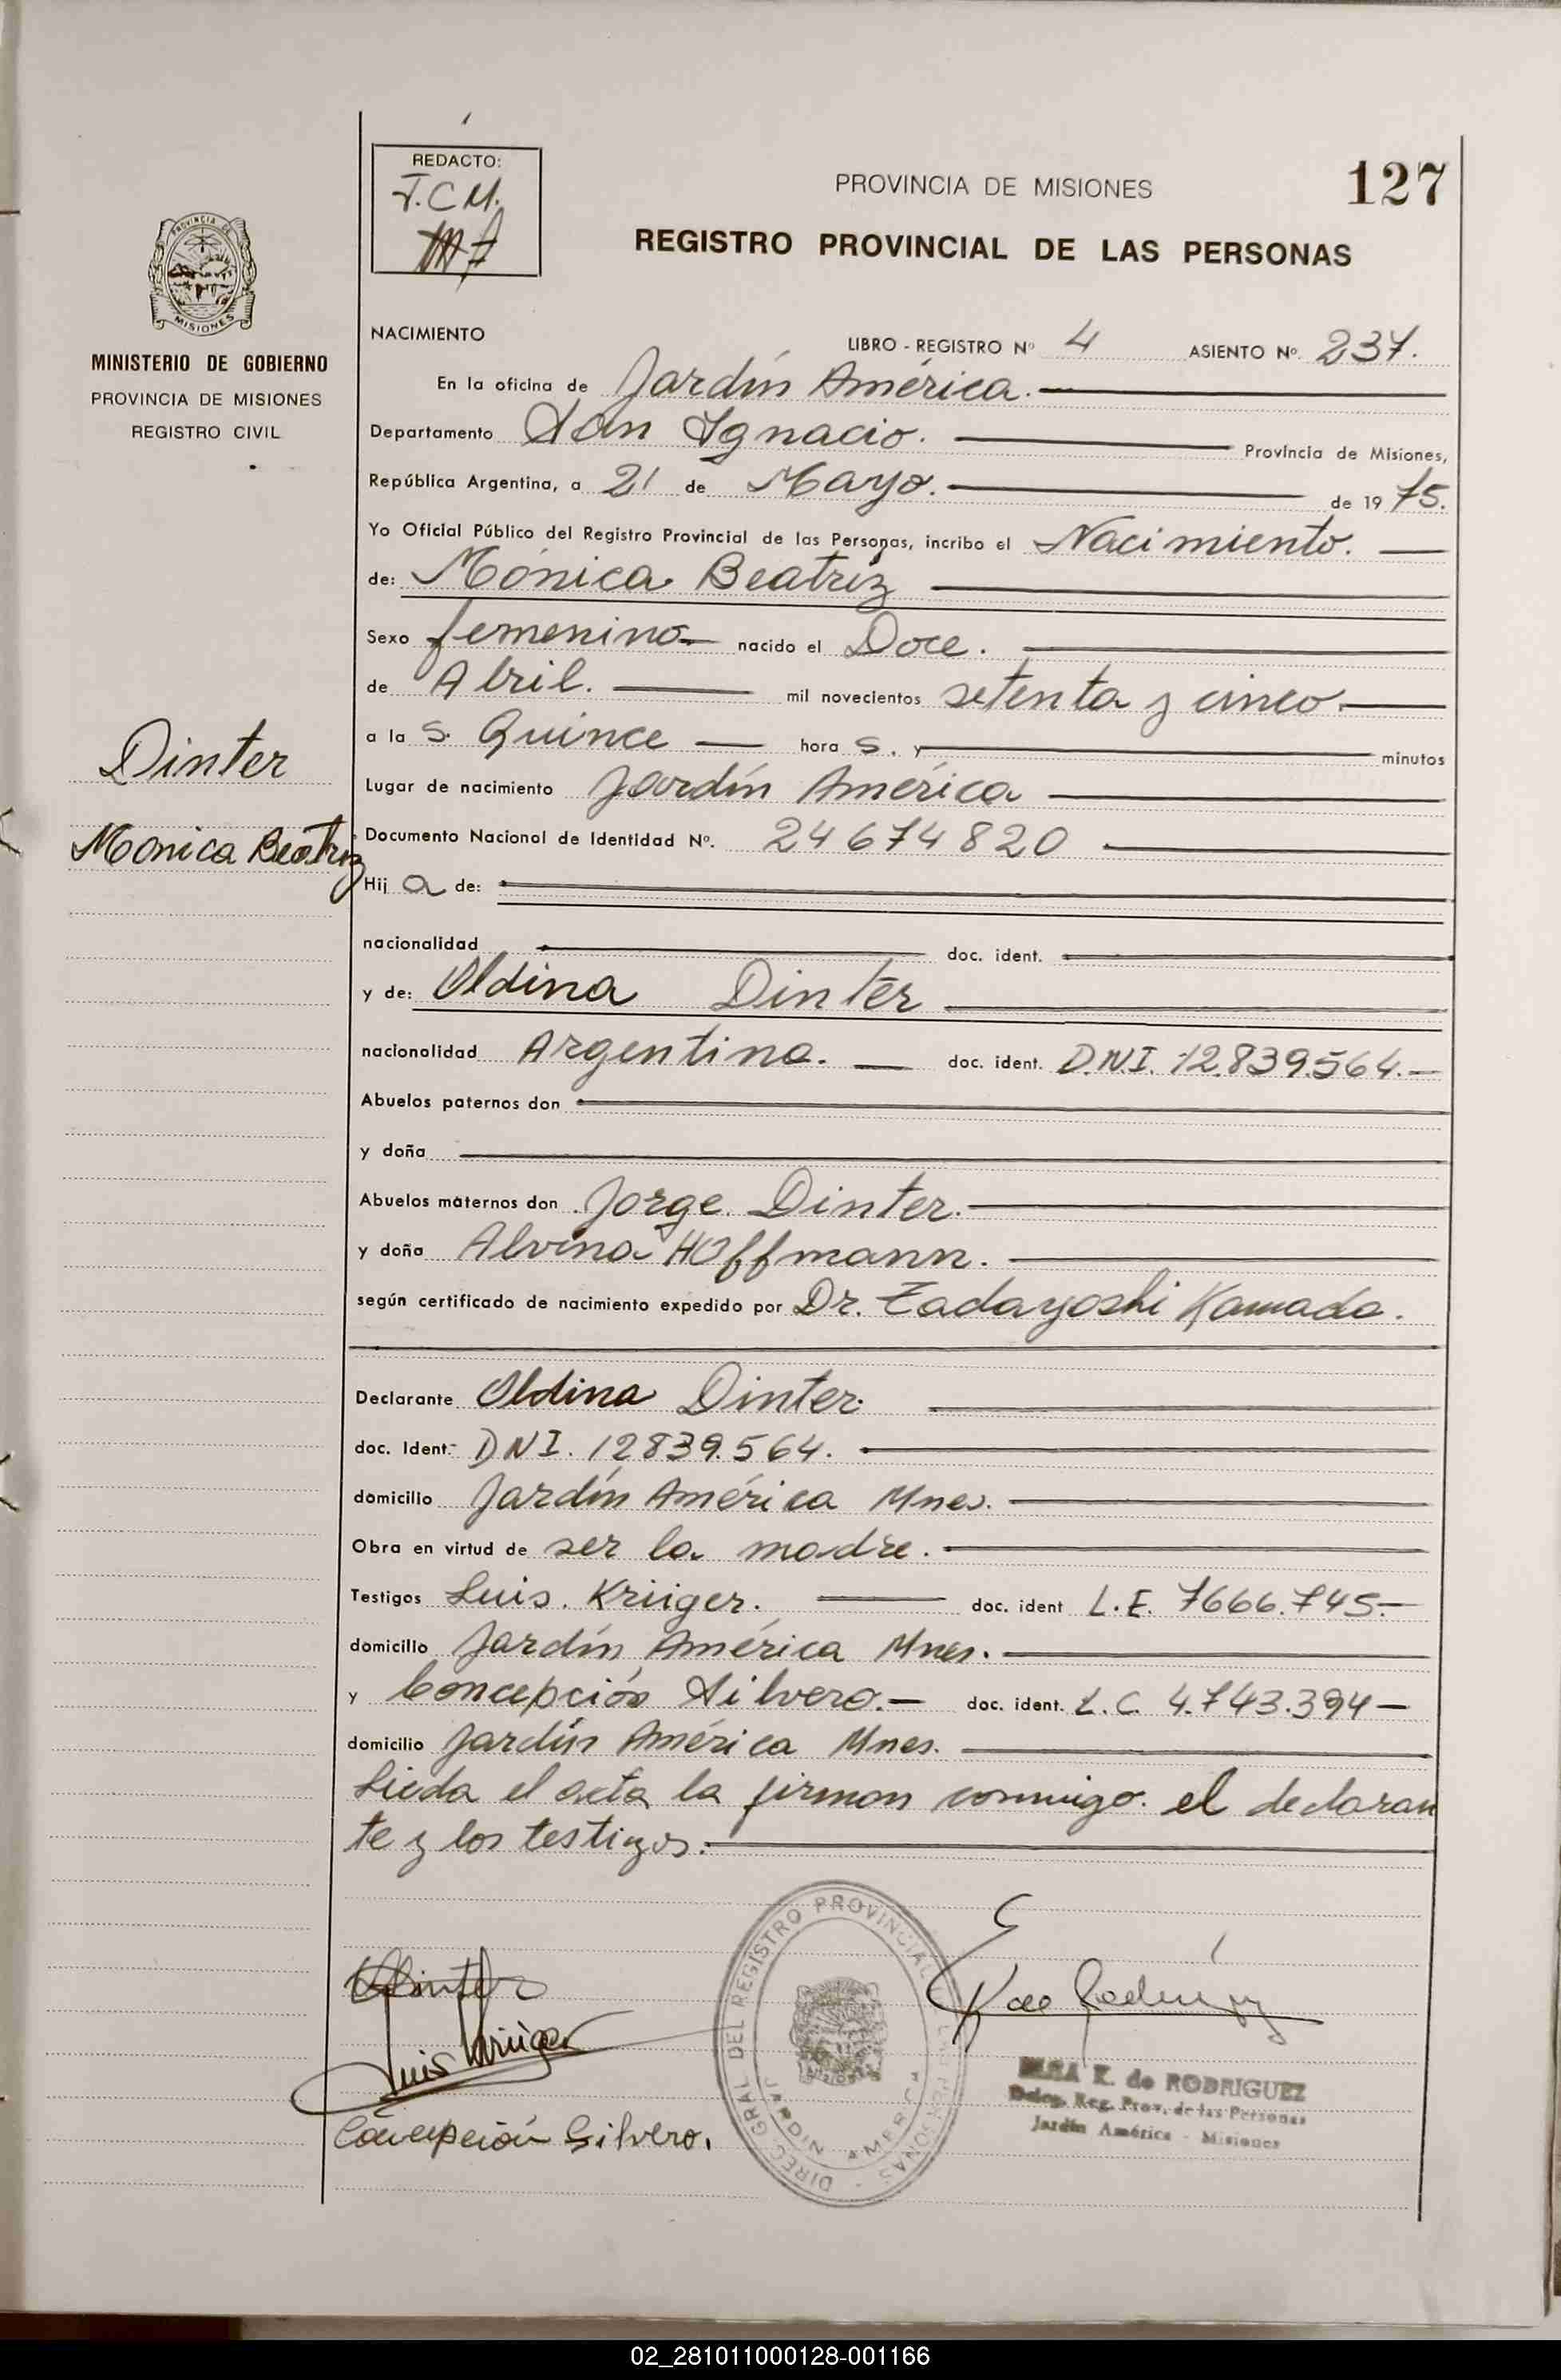 REDACTO:
J.C.M.
PROVINCIA DE MISIONES
127
REGISTRO PROVINCIAL DE LAS PERSONAS
PROVINCIA DE
MISIONES
MINISTERIO DE GOBIERNO
PROVINCIA DE MISIONES
REGISTRO CIVIL
NACIMIENTO LIBRO - REGISTRO Nº 4 ASIENTO Nº 237.
En la oficina de Jardín América.
Departamento San Ignacio. Provincia de Misiones,
República Argentina, a 21 de Mayo. de 1975.
Yo Oficial Público del Registro Provincial de las Personas, incribo el Nacimiento.
de: Mónica Beatriz
Sexo femenino nacido el Doce.
de Abril. mil novecientos setenta y cinco
a la s. Quince hora s. y minutos
Dinter
Lugar de nacimiento Jardín América
Monica Beatriz
Documento Nacional de Identidad Nº. 24674820
Hij a de:
nacionalidad doc. ident.
y de: Oldina Dinter
nacionalidad Argentina. doc. ident. D.N.I. 12.839.564.
Abuelos paternos don
y doña
Abuelos maternos don Jorge Dinter.
y doña Alvina Hoffmann.
según certificado de nacimiento expedido por Dr. Tadayoshi Kamada.
Declarante Oldina Dinter
doc. Ident. DNI. 12839.564.
domicilio Jardín América Mnes.
Obra en virtud de ser la madre.
Testigos Luis Krüger. doc. ident L.E. 7666.745.
domicilio Jardín América Mnes.
y Concepción Silvero. doc. ident. L.C. 4.743.394
domicilio Jardín América Mnes.
Lieda el acta la firman conmigo el declaran
te y los testigos.
Dinter
Luis Krüger
Concepción Silvero.
DIREC. GRAL DEL REGISTRO PROVINCIAL DE LAS PERSONAS
JARDIN AMERICA
K de Rodriguez
K. de RODRIGUEZ
Deleg. Reg. Prov. de las Personas
Jardín América - Misiones
02_281011000128-001166